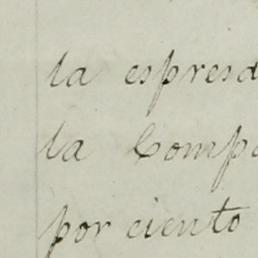 la espresa
la Compa
por ciento